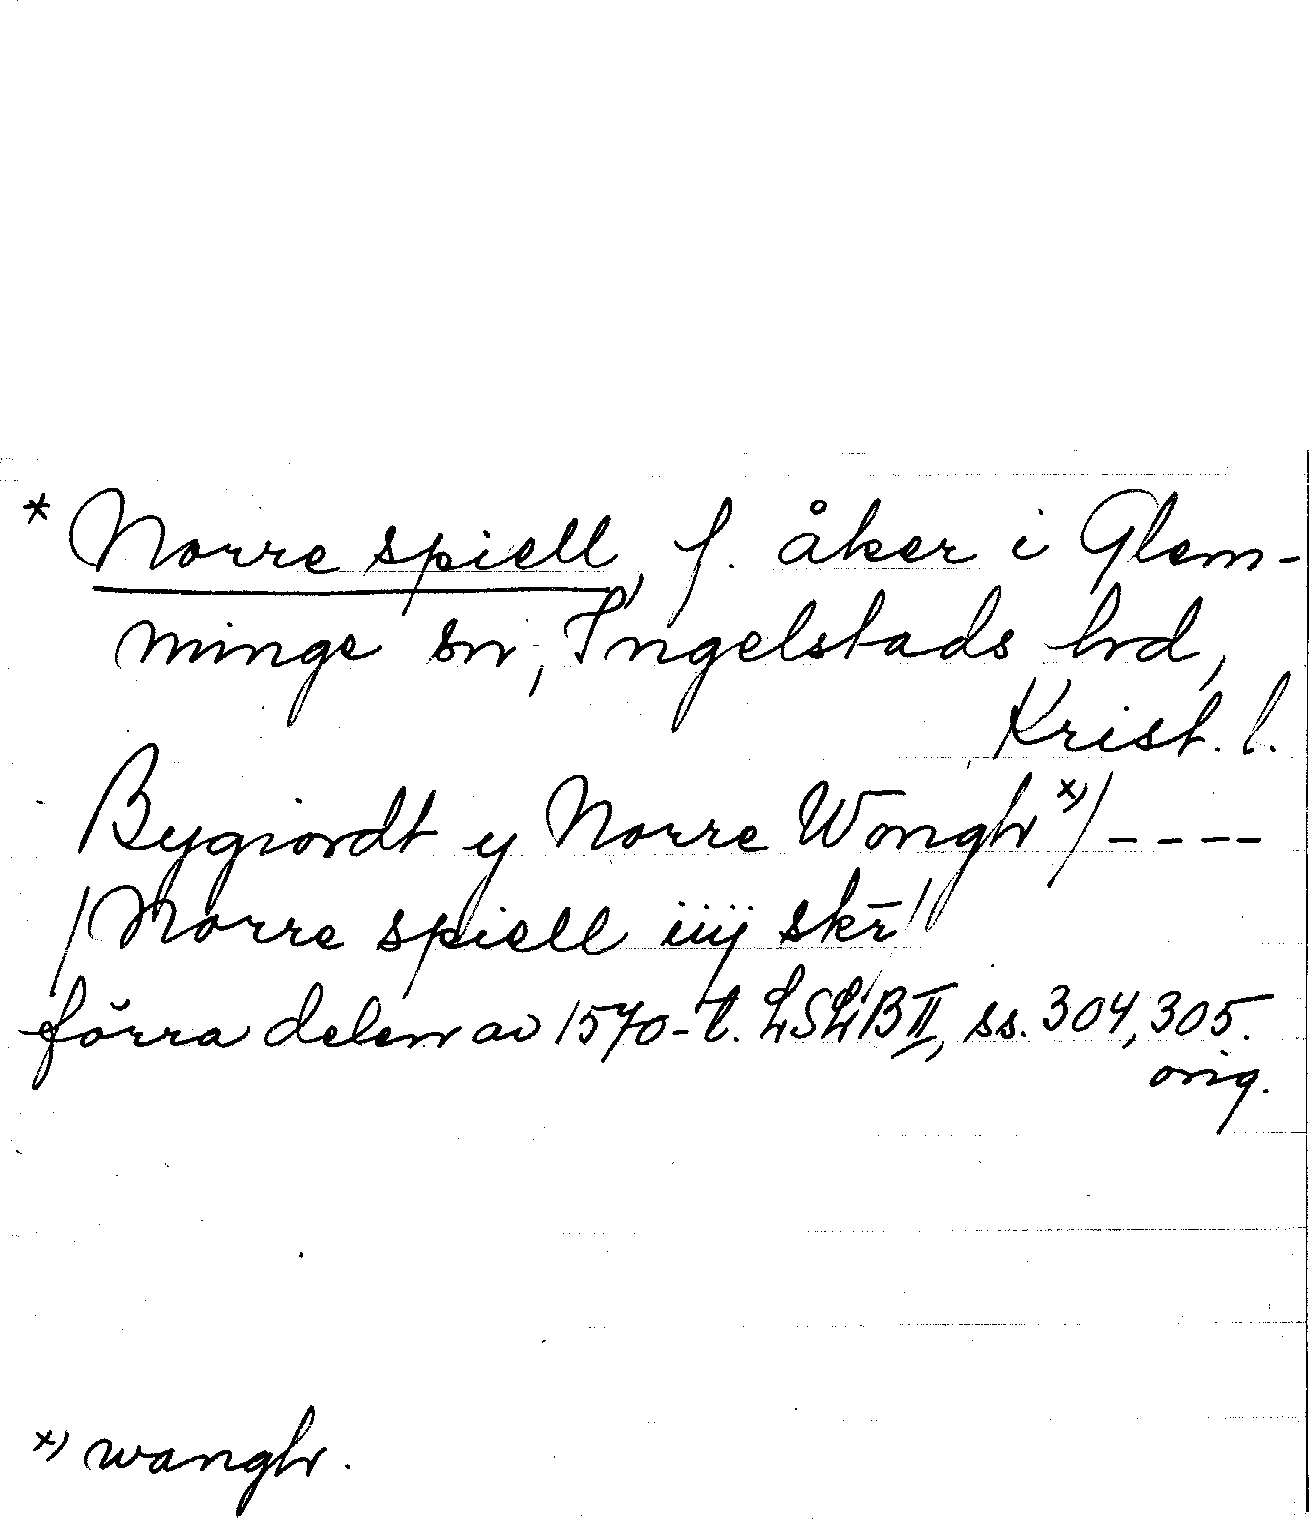 * Norre spiell, f. åker i Glem-
minge sn, Ingelstads hrd,
Krist. l.
Bygiordt y Norre Wongh x)/ ----
/Norre spiell iiij skr̄/
förra delen av 1570-t. LSLB II, ss. 304, 305.
orig.
x) wangh.